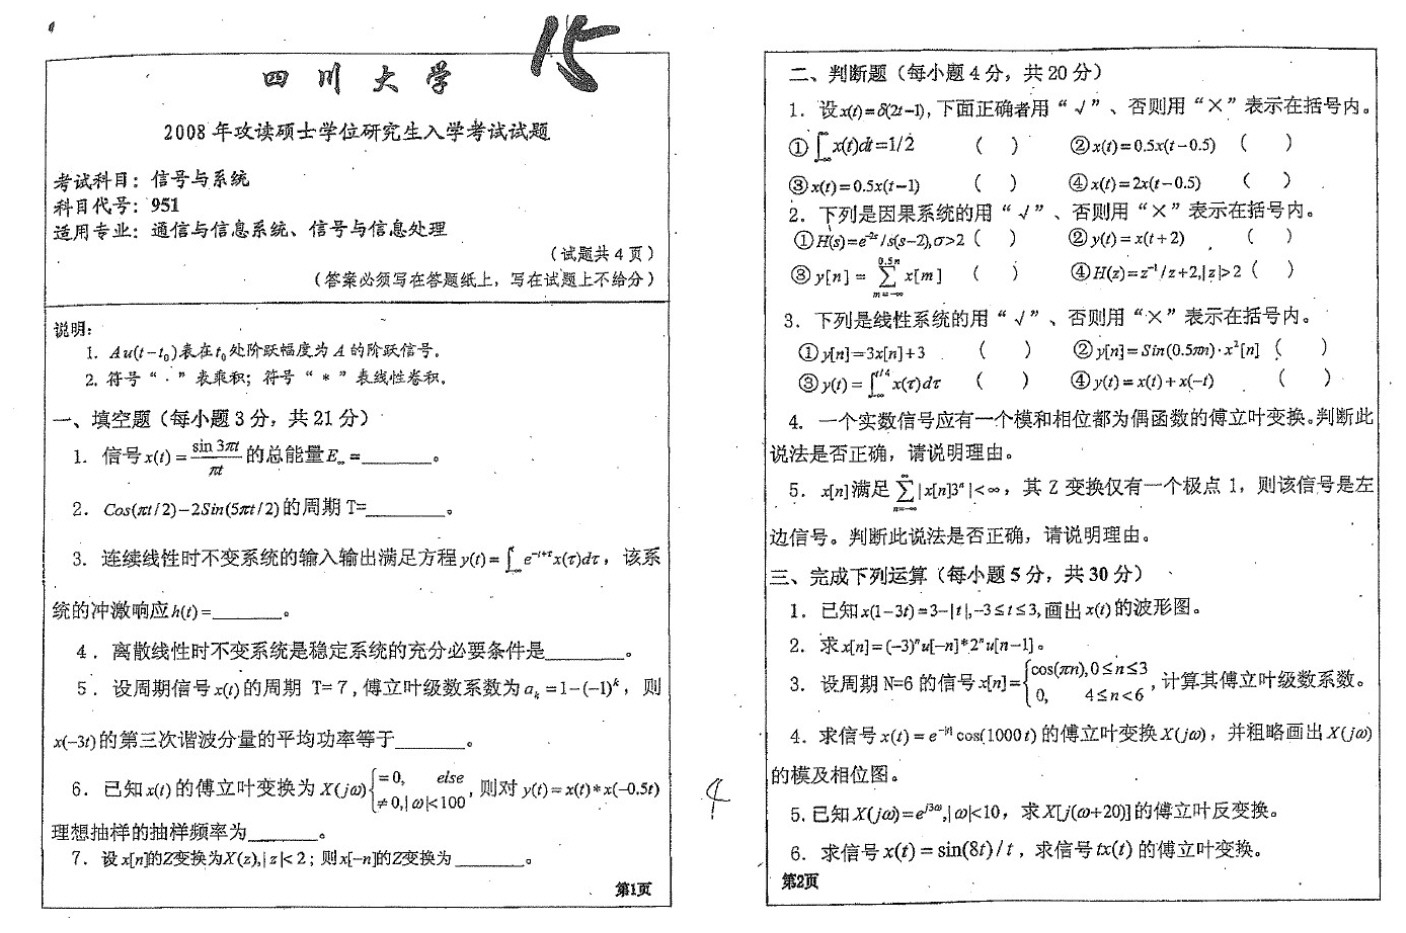 15
四川大学
2008年攻读硕士学位研究生入学考试试题
考试科目：信号与系统
科目代号：951
适用专业：通信与信息系统、信号与信息处理
（试题共4页）
（答案必须写在答题纸上，写在试题上不给分）
说明：
1. Au(t-t₀)表在t₀处阶跃幅度为A的阶跃信号。
2. 符号“·”表乘积；符号“*”表线性卷积。
一、填空题（每小题3分，共21分）
1. 信号x(t)=sin3πt/πt的总能量E∞=______。
2. Cos(πt/2)-2Sin(5πt/2)的周期T=______。
3. 连续线性时不变系统的输入输出满足方程y(t)=∫_{-∞}^{t}e^{-t+τ}x(τ)dτ，该系
统的冲激响应h(t)=______。
4. 离散线性时不变系统是稳定系统的充分必要条件是______。
5. 设周期信号x(t)的周期 T=7，傅立叶级数系数为a_k=1-(-1)^k，则
x(-3t)的第三次谐波分量的平均功率等于______。
6. 已知x(t)的傅立叶变换为X(jω){=0, else; ≠0,|ω|<100，则对y(t)=x(t)*x(-0.5t)
理想抽样的抽样频率为______。
7. 设x[n]的Z变换为X(z),|z|<2；则x[-n]的Z变换为______。
第1页
4
二、判断题（每小题4分，共20分）
1. 设x(t)=δ(2t-1)，下面正确者用“√”、否则用“×”表示在括号内。
①∫_{-∞}^{∞}x(t)dt=1/2 （ ） ②x(t)=0.5x(t-0.5) （ ）
③x(t)=0.5x(t-1) （ ） ④x(t)=2x(t-0.5) （ ）
2. 下列是因果系统的用“√”、否则用“×”表示在括号内。
①H(s)=e^{-2s}/s(s-2),σ>2（ ） ②y(t)=x(t+2) （ ）
③y[n]=∑_{m=-∞}^{0.5n}x[m] （ ） ④H(z)=z^{-1}/z+2,|z|>2（ ）
3. 下列是线性系统的用“√”、否则用“×”表示在括号内。
①y[n]=3x[n]+3 （ ） ②y[n]=Sin(0.5πn)·x²[n] （ ）
③y(t)=∫_{-∞}^{t/4}x(τ)dτ （ ） ④y(t)=x(t)+x(-t) （ ）
4. 一个实数信号应有一个模和相位都为偶函数的傅立叶变换。判断此
说法是否正确，请说明理由。
5. x[n]满足∑_{n=-∞}^{∞}|x[n]3^n|<∞，其Z变换仅有一个极点1，则该信号是左
边信号。判断此说法是否正确，请说明理由。
三、完成下列运算（每小题5分，共30分）
1. 已知x(1-3t)=3-|t|,-3≤t≤3,画出x(t)的波形图。
2. 求x[n]=(-3)^n u[-n]*2^n u[n-1]。
3. 设周期N=6的信号x[n]={cos(πn),0≤n≤3; 0, 4≤n<6，计算其傅立叶级数系数。
4. 求信号x(t)=e^{-|t|}cos(1000t)的傅立叶变换X(jω)，并粗略画出X(jω)
的模及相位图。
5. 已知X(jω)=e^{j3ω},|ω|<10，求X[j(ω+20)]的傅立叶反变换。
6. 求信号x(t)=sin(8t)/t，求信号tx(t)的傅立叶变换。
第2页